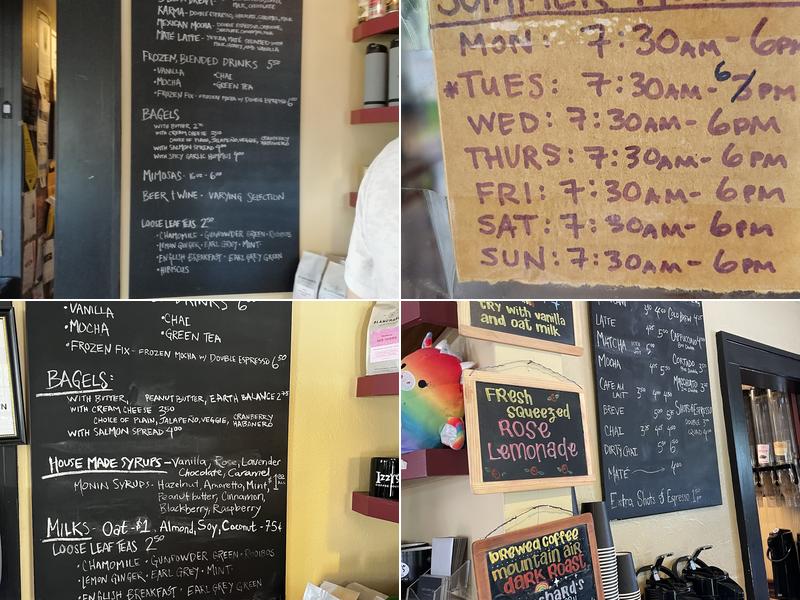 KARMA - DOUBLE ESPRESSO, HONEY
MEXICAN MOCHA - DOUBLE ESPRESSO
MATÉ LATTE - YERBA MATÉ STEAMED
FROZEN, BLENDED DRINKS 5⁵⁰
• VANILLA • CHAI
• MOCHA • GREEN TEA
• FROZEN FIX - FROZEN MOCHA W/ DOUBLE ESPRESSO 6⁵⁰
BAGELS
WITH BUTTER
WITH CREAM CHEESE 3⁵⁰
CHOICE OF PLAIN, JALAPEÑO, VEGGIE, CRANBERRY HABANERO
WITH SALMON SPREAD 4⁰⁰
WITH SPICY GARLIC HUMMUS 4⁰⁰
MIMOSAS -
BEER + WINE - VARYING SELECTION
LOOSE LEAF TEAS 2⁵⁰
• CHAMOMILE • GUNPOWDER GREEN • ROOIBOS
• LEMON GINGER • EARL GREY • MINT
• ENGLISH BREAKFAST • EARL GREY GREEN
• HIBISCUS
MON: 7:30AM - 6PM
*TUES: 7:30AM - 6/3PM
WED: 7:30AM - 6PM
THURS: 7:30AM - 6PM
FRI: 7:30AM - 6PM
SAT: 7:30AM - 6PM
SUN: 7:30AM - 6PM
DRINKS 6
• VANILLA • CHAI
• MOCHA • GREEN TEA
• FROZEN FIX - FROZEN MOCHA W/ DOUBLE ESPRESSO 6⁵⁰
BAGELS:
WITH BUTTER, PEANUT BUTTER, EARTH BALANCE 2⁷⁵
WITH CREAM CHEESE 3⁵⁰
CHOICE OF PLAIN, JALAPEÑO, VEGGIE, CRANBERRY HABANERO
WITH SALMON SPREAD 4⁰⁰
HOUSE MADE SYRUPS - Vanilla, Rose, Lavender
Chocolate, Caramel
MONIN SYRUPS - Hazelnut, Amaretto, Mint,
Peanutbutter, Cinnamon,
Blackberry, Raspberry
MILKS - Oat - $1, Almond, Soy, Coconut - 75¢
LOOSE LEAF TEAS 2⁵⁰
• CHAMOMILE • GUNPOWDER GREEN • ROOIBOS
• LEMON GINGER • EARL GREY • MINT
• ENGLISH BREAKFAST • EARL GREY GREEN
Izzy's
try with vanilla
and oat milk
FResh
squeezed
ROSE
Lemonade
brewed coffee
mountain air
dark Roast
LATTE
MATCHA
MOCHA
CAFE AU
LAIT
BREVE
CHAI
DIRTY CHAI
MATÉ 4⁰⁰
COLD BREW
CAPPUCCINO
CORTADO
MACCHIATO
SHOTS OF ESPRESSO
Extra Shots of Espresso 1⁰⁰